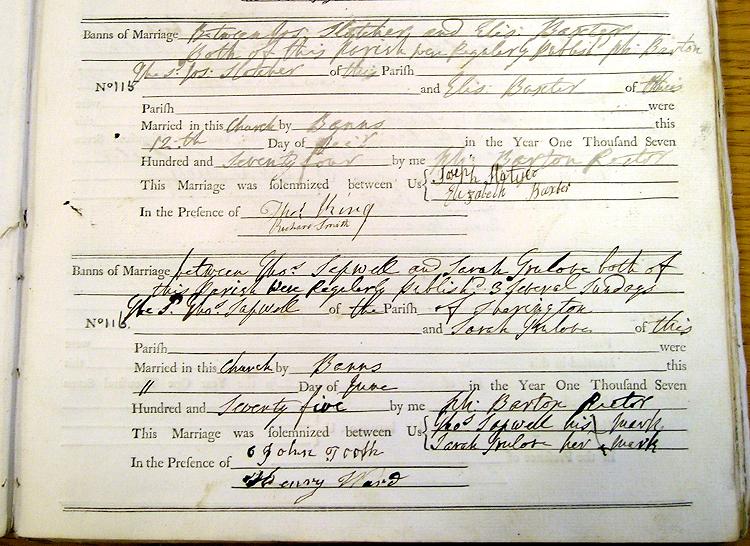 Banns of Marriage Between Jos. Slotcher and Elis. Baxter
Both of this Parish were Regularly Publisht Phi: Barton
The sd. Jos. Slotcher of this Parish
No 115 and Elis: Baxter of this
Parish were
Married in this Church by Banns this
12th Day of in the Year One Thousand Seven
Hundred and Seventy four by me Phi: Barton Rector
This Marriage was solemnized between Us { Joseph
Elizabeth Baxter
In the Presence of Thos King
Richard Smith
Banns of Marriage between Thos. Sapwell and Sarah Grulove both of
this Parish were Regularly Publisht 3 several Sundays
The sd. Thos. Sapwell of the Parish of Sherington
No 116. and Sarah Grulove of this
Parish were
Married in this Church by Banns this
11 Day of June in the Year One Thousand Seven
Hundred and Seventy five by me Phi: Barton Rector
This Marriage was solemnized between Us { Thos. Sapwell his mark
Sarah Grulove her mark
In the Presence of John Tooth
Henry Ward